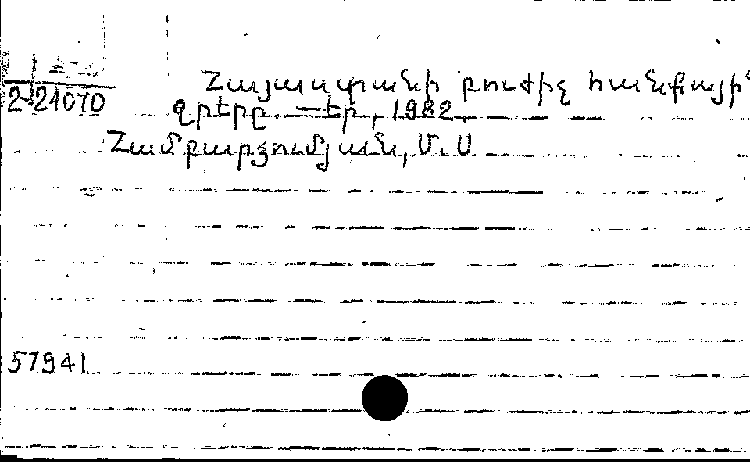 Հայաստանի բուժիչ հանքային
2-21070 ջրերը. — Եր., 1982.
Համբարձումյան, Մ. Ս.
57941